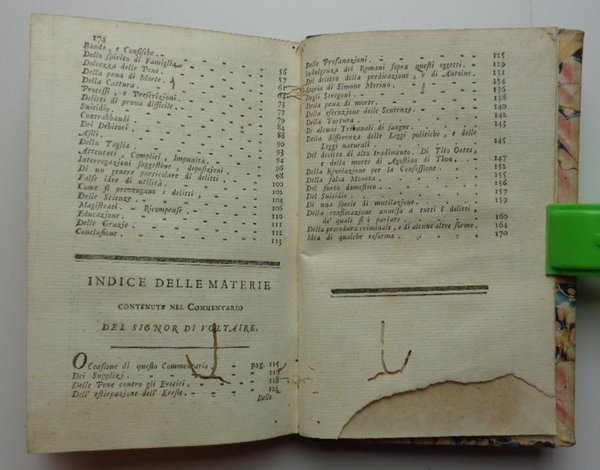 174
Bando, e Confische.
Dello spirito di Famiglia. 56
Dolcezza delle Pene. 57
Della pena di Morte. 61
Della Cattura. 63
Processi, e Prescrizioni. 73
Delitti di prova difficile. 77
Suicidio. 79
Contrabbandi 84
Dei Debitori. 88
Asili. 90
Della Taglia. 93
Attentati, Complici, Impunità. 94
Interrogazioni suggestive, deposizioni 96
Di un genere particolare di delitti. 98
False idee di utilità. 100
Come si prevengano i delitti, 102
Delle Scienze. 104
Magistrati. Ricompense. 106
Educazione. 110
Delle Grazie. 111
Conclusione. 113
INDICE DELLE MATERIE
CONTENUTE NEL COMMENTARIO
DEL SIGNOR DI VOLTAIRE.
OCcasione di questo Commentario. pag. 115
Dei Supplizj. 117
Delle Pene contro gli Eretici. 118
Dell' estirpazione dell' Eresie. 122
Delle
Delle Profanazioni. 125
Indulgenza dei Romani sopra questi oggetti. 129
Del delitto della predicazione, e di Antoine. 131
Storia di Simone Morino. 134
Degli Stregoni. 136
Della pena di morte. 138
Della esecuzione delle Sentenze. 140
Della Tortura. 142
Di alcuni Tribunali di sangue. 143
Della differenza delle Leggi politiche, e delle
Leggi naturali. 145
Del delitto di alto tradimento. Di Tito Oates,
e della morte di Agostino di Thou. 147
Della Rivelazione per la Confessione 152
Della falsa Moneta. 155
Del furto domestico. 156
Del Suicidio. 157
Di una specie di mutilazione. 159
Della confiscazione annessa a tutti i delitti,
de' quali si è parlato. 160
Della procedura criminale, e di alcune altre forme. 164
Idea di qualche riforma. 170